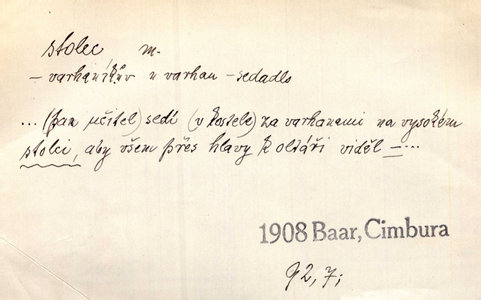 stolec m.
– varhaníkův u varhan – sedadlo
... (pan učitel) sedí (v kostele) za varhanami na vysokém
stolci, aby všem přes hlavy k oltáři viděl – ...
1908 Baar, Cimbura
92, 7;